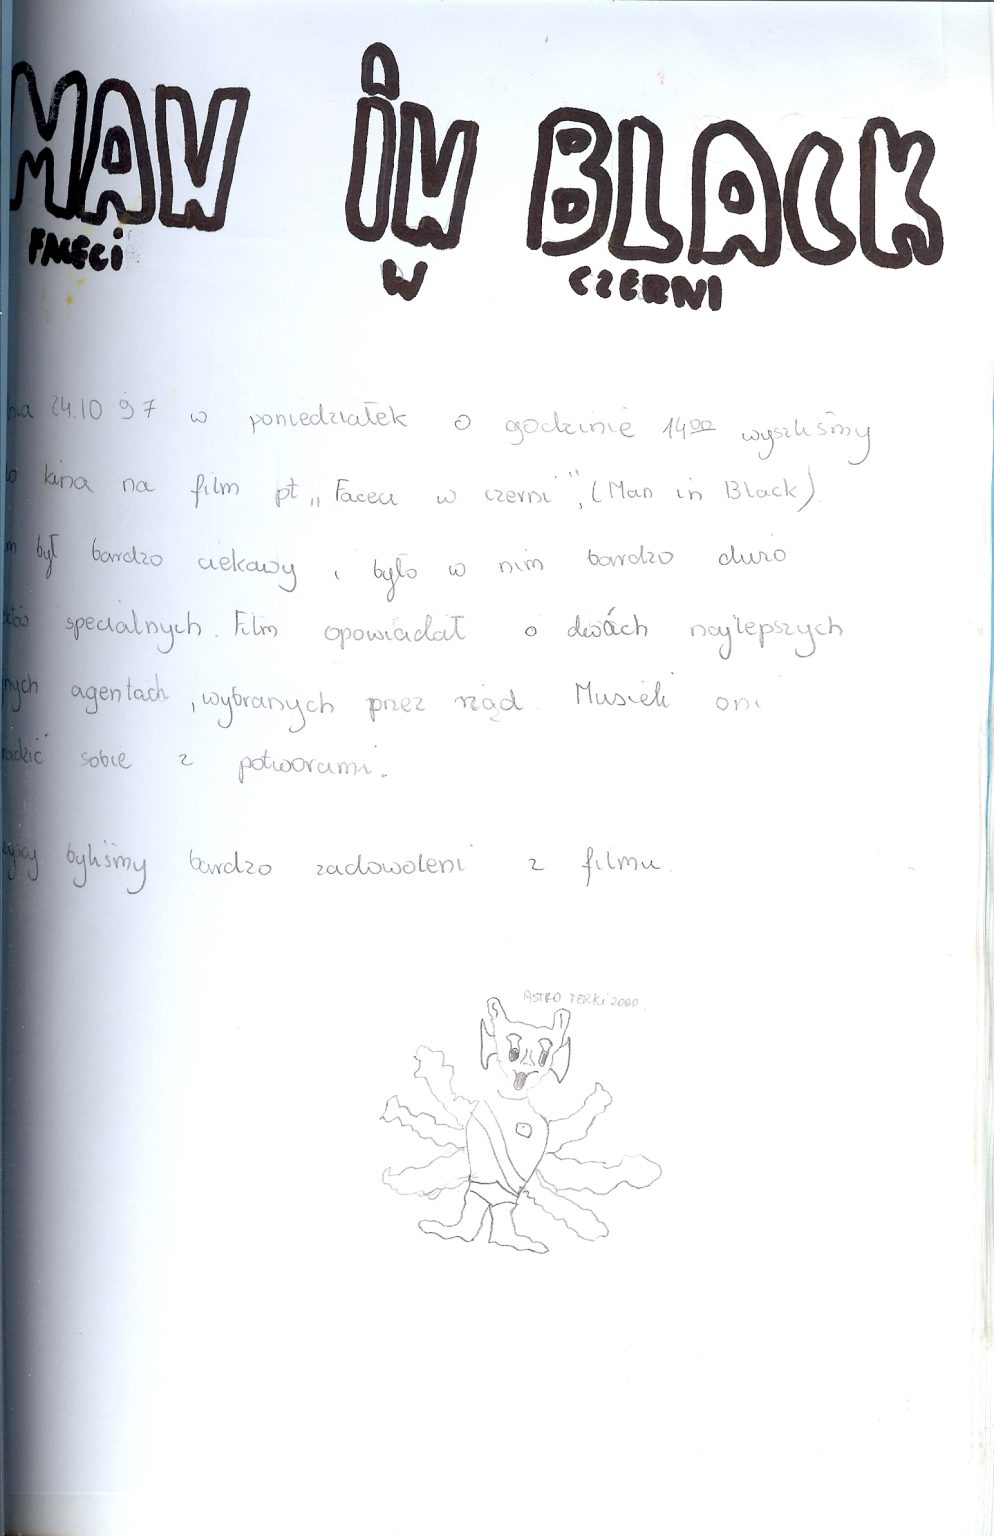 MAN iN BLACK
FACECi W CZERNI
24.10 97 w poniedziałek o godzinie 14⁰⁰ wyszliśmy
kina na film pt „Faceci w czerni", (Man in Black)
był bardzo ciekawy i było w nim bardzo dużo
specialnych. Film opowiadał o dwóch najlepszych
agentach, wybranych przez rząd. Musieli oni
sobie z potworami.
byliśmy bardzo zadowoleni z filmu
ASTRO TERKi 2000